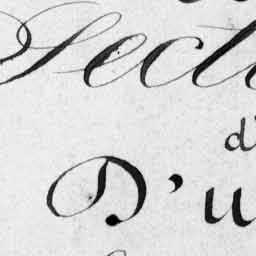 Secti
d'
D'u